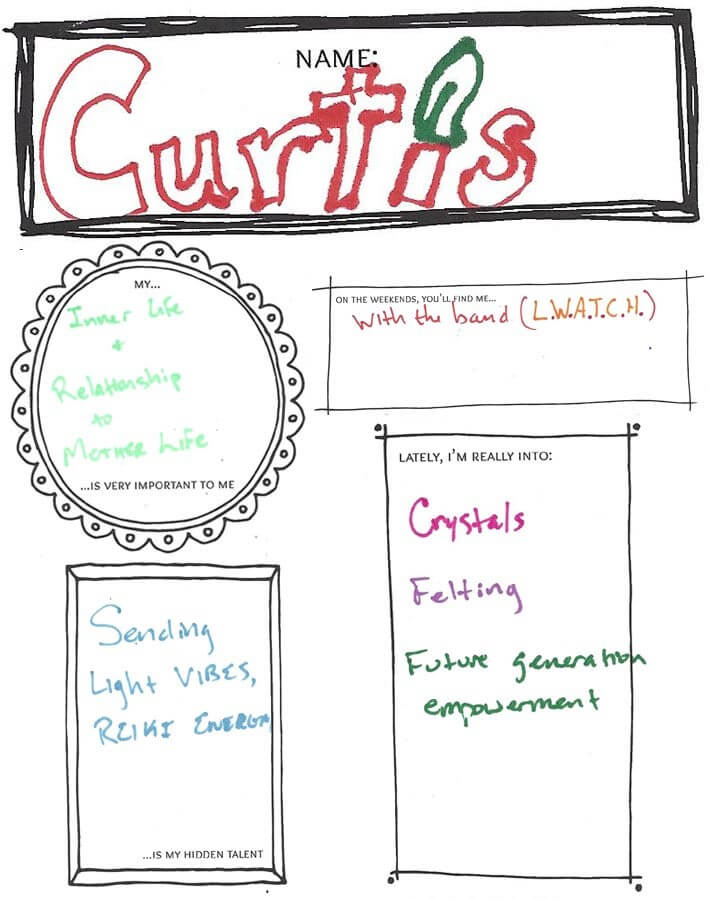 NAME:
Curtis
MY...
Inner Life
+
Relationship
to
Mother Life
...IS VERY IMPORTANT TO ME
ON THE WEEKENDS, YOU'LL FIND ME...
With the band (L.W.A.T.C.H.)
LATELY, I'M REALLY INTO:
Crystals
Felting
Future generation
empowerment
Sending
Light VIBES,
REIKI ENERGY
...IS MY HIDDEN TALENT